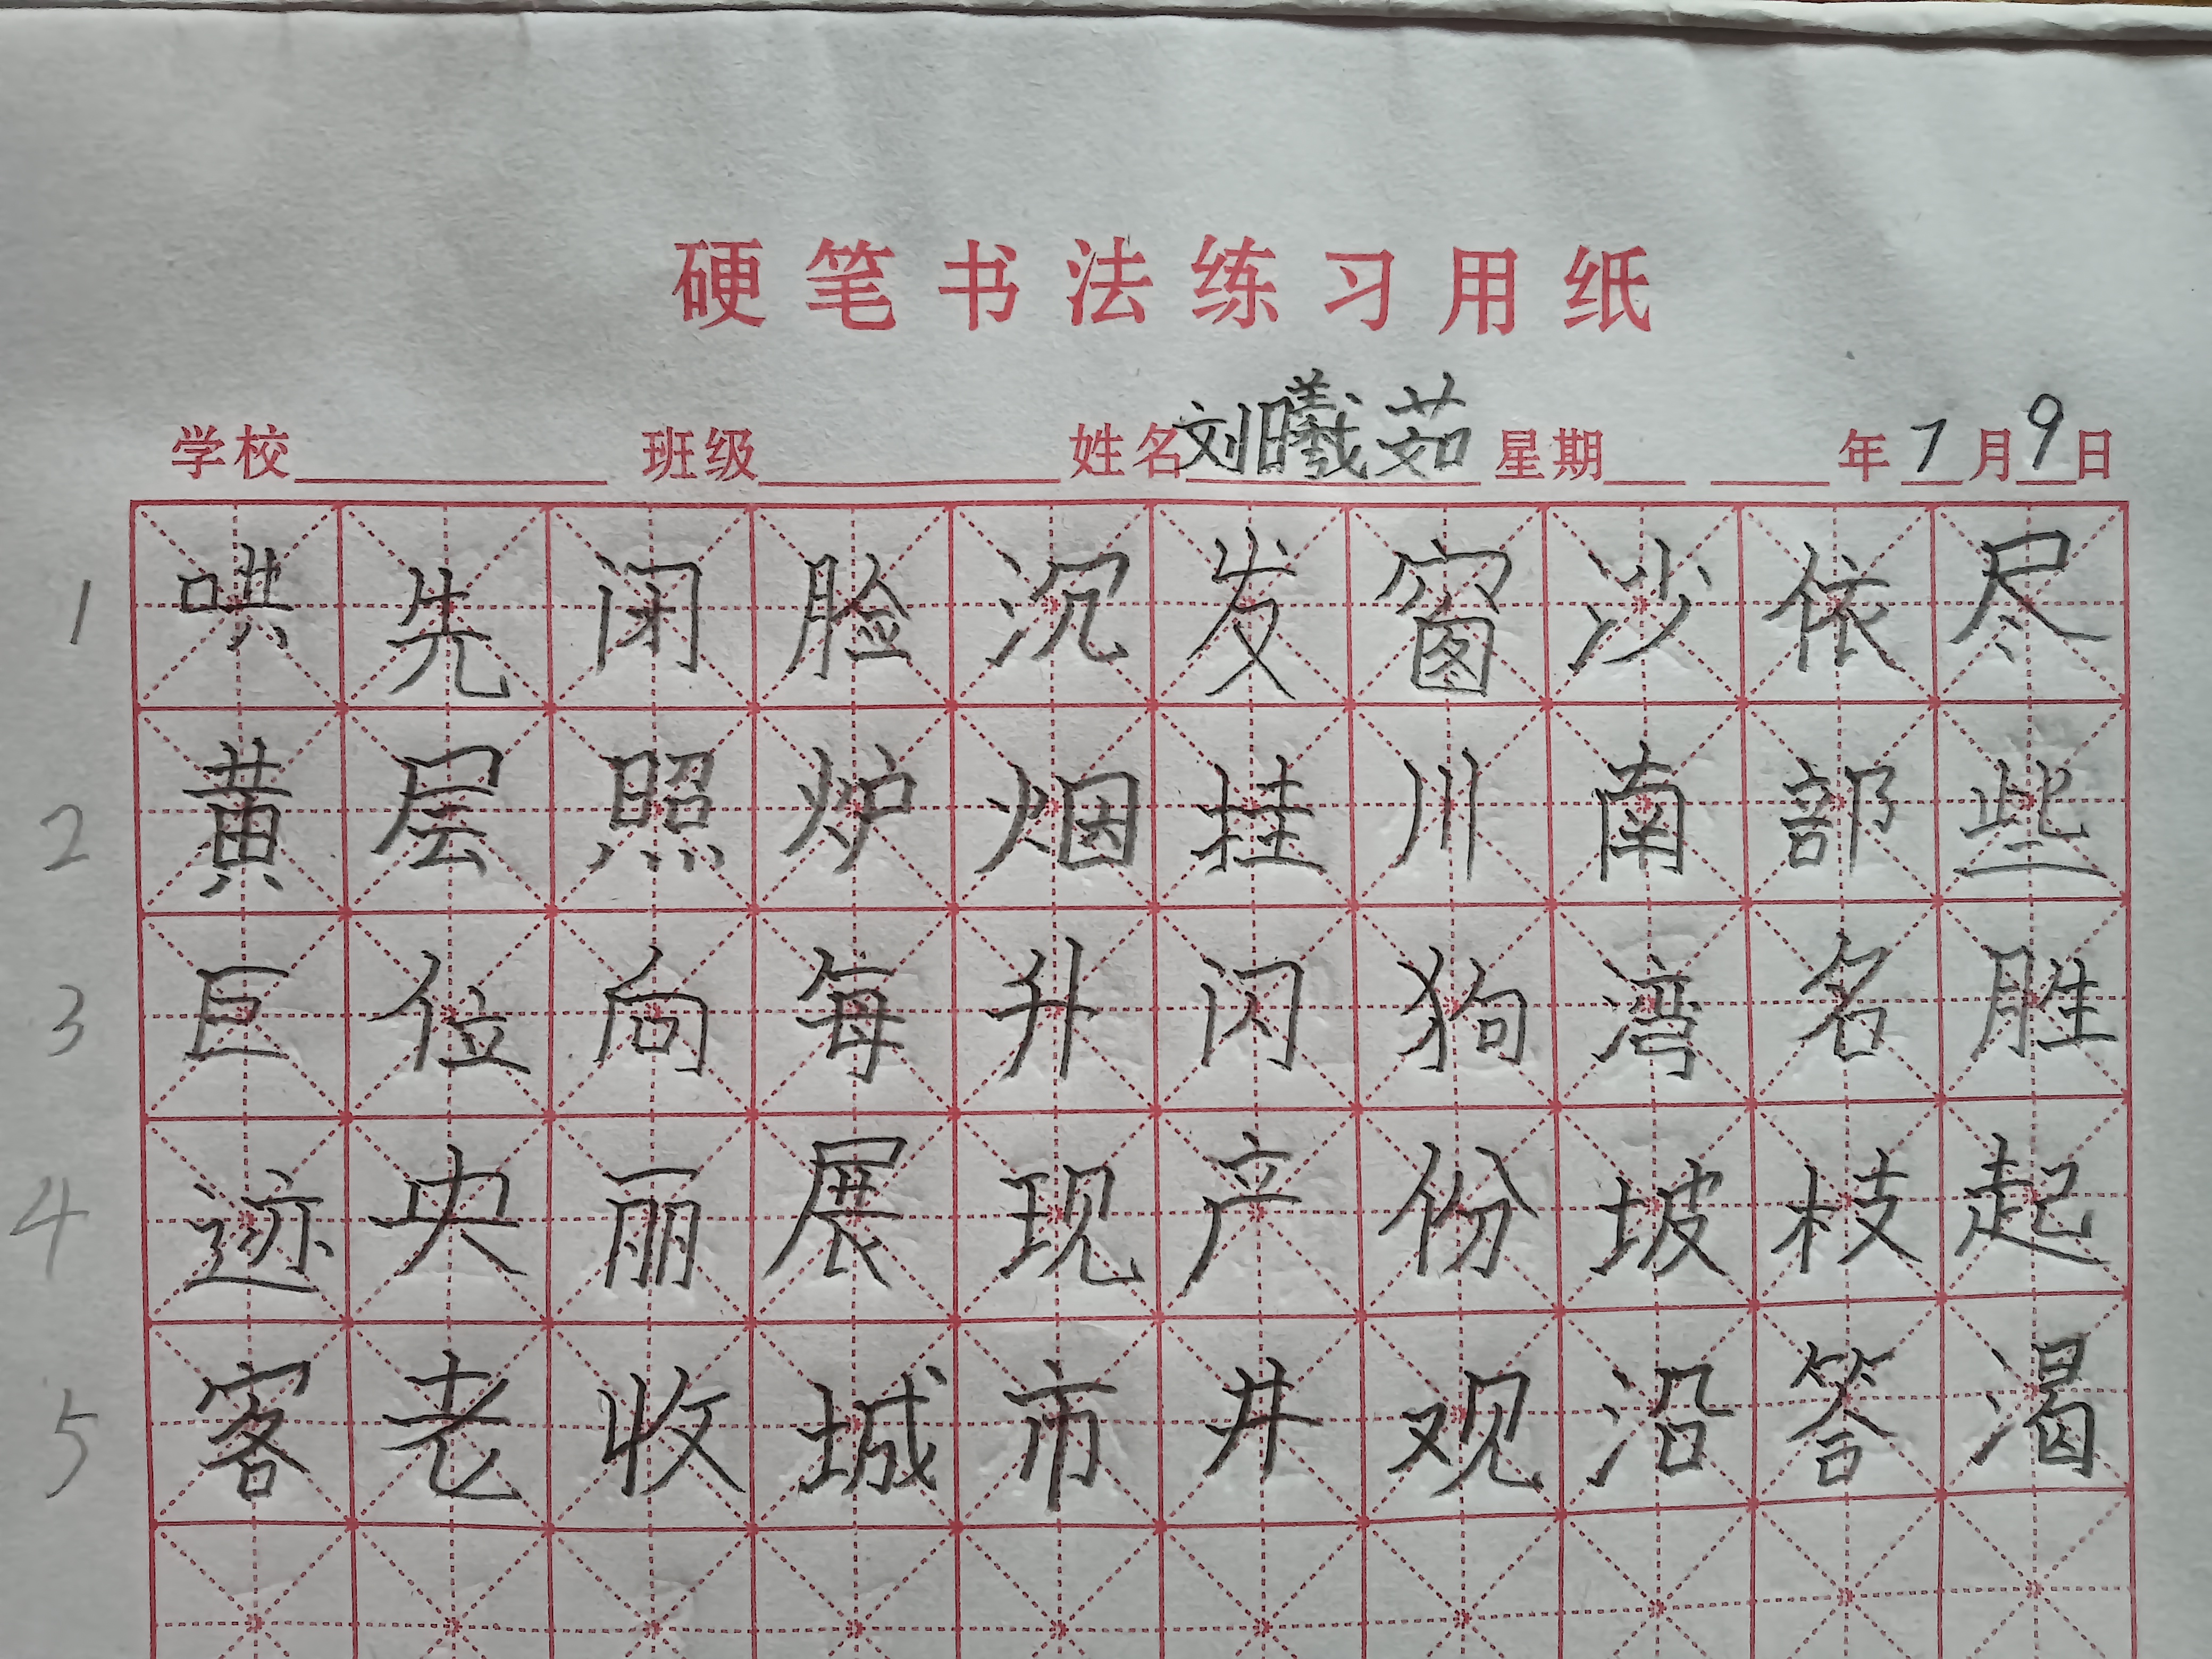 硬笔书法练习用纸
学校 班级 姓名刘曦茹 星期 年7月9日
1 哄先闭脸沉发窗沙依尽
2 黄层照炉烟挂川南部些
3 巨位向每升闪狗湾名胜
4 迹央丽展现产份坡枝起
5 客老收城市井观沿答渴